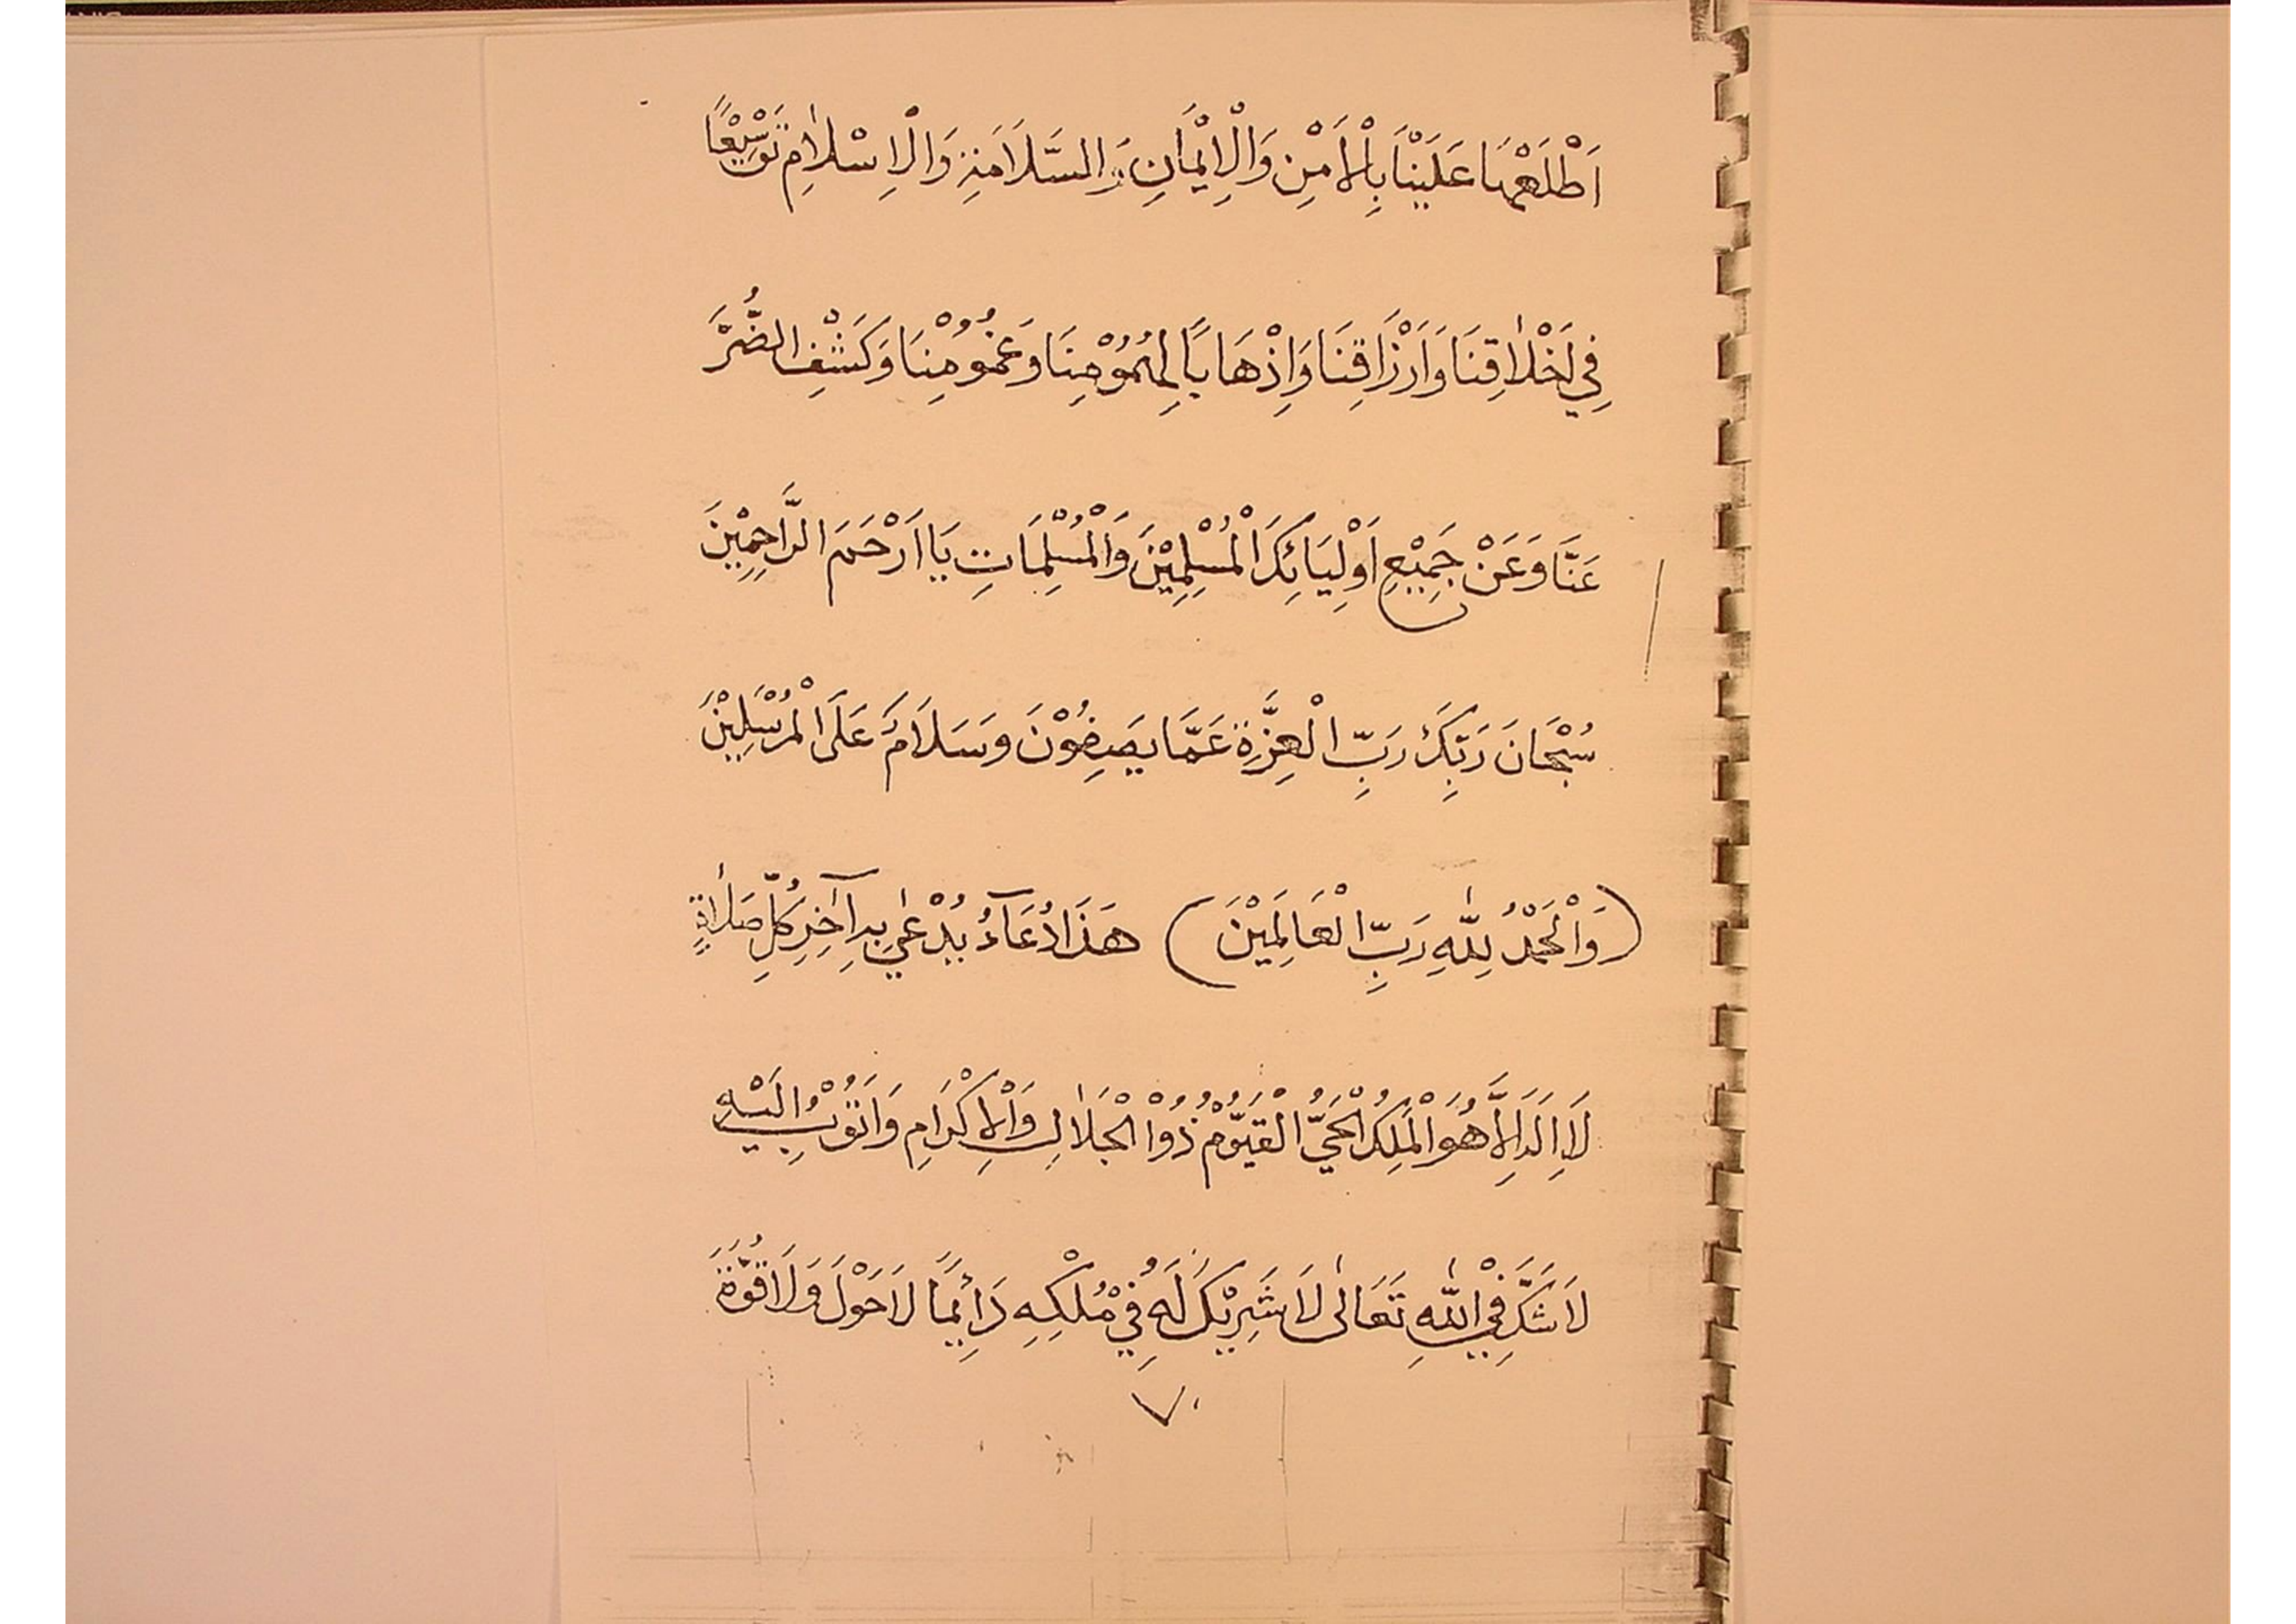 اَطْلَعْهَا عَلَيْنَا بِالْاَمْنِ وَالْاِيْمَانِ وَالسَّلَامَةِ وَالْاِسْلَامِ تَوْسِيْعًا
فِي اَخْلَاقِنَا وَاَرْزَاقِنَا وَاِذْهَابًا لِهُمُوْمِنَا وَغُمُوْمِنَا وَكَشْفِ الضُّرَّ
عَنَّا وَعَنْ جَمِيْعِ اَوْلِيَائِكَ الْمُسْلِمِيْنَ وَالْمُسْلِمَاتِ يَا اَرْحَمَ الرَّاحِمِيْنَ
سُبْحَانَ رَبِّكَ رَبِّ الْعِزَّةِ عَمَّا يَصِفُوْنَ وَسَلَامٌ عَلَى الْمُرْسَلِيْنَ
(وَالْحَمْدُ لِلّٰهِ رَبِّ الْعَالَمِيْنَ) هَذَا دُعَآءُ يُدْعٰي بِهِ آخِرِ كُلِّ صَلٰاةٍ
لَا اِلَهَ اِلَّا هُوَ الْمَلِكُ الْحَيُّ الْقَيُّوْمُ ذُوْا الْجَلٰالِ وَالْاِكْرَامِ وَاَتُوْبُ اِلَيْهِ
لَا شَكَّ فِيْ اللّٰهِ تَعَالٰى لَا شَرِيْكَ لَهُ فِيْ مُلْكِهِ دَائِمًا لَا حَوْلَ وَلَا قُوَّةَ
٧٠